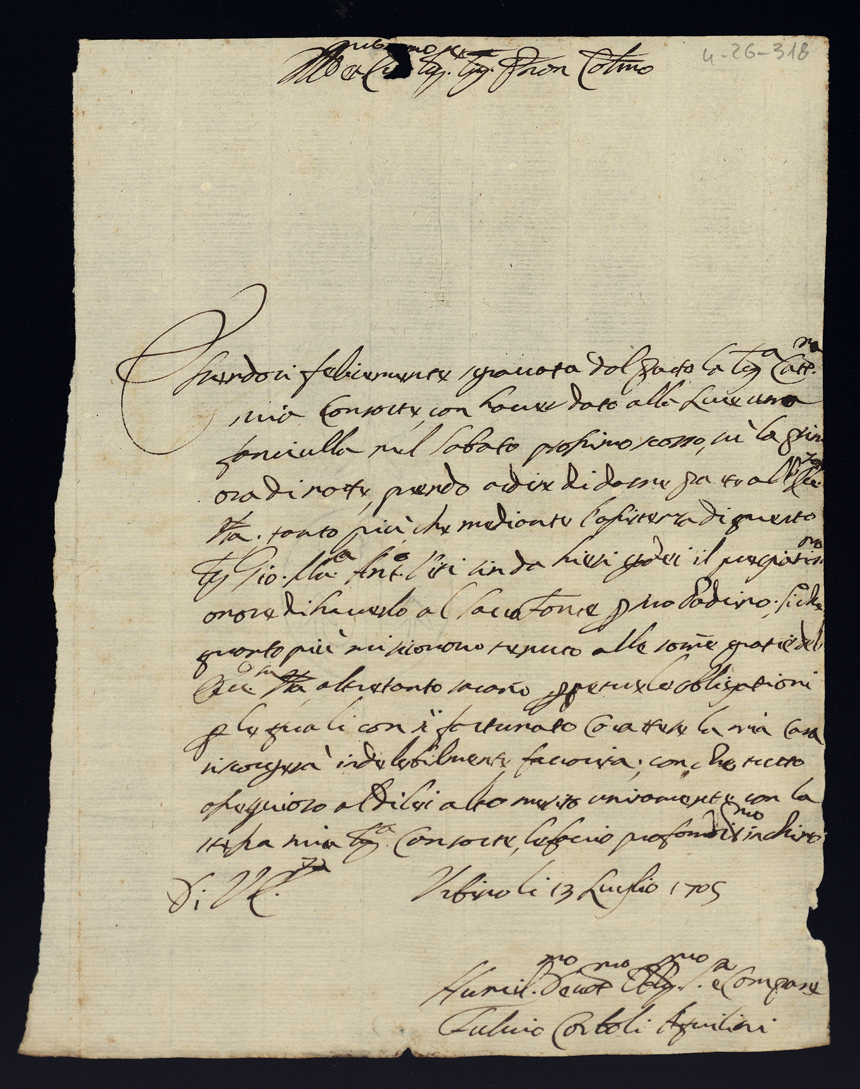 4-26-318
Ill.mo et Sig.r Sig.r Pron Col.mo
Essendosi felicemente sgravata dal parto la Sig.a Catt.na
mia Consorte, con haver dato alla luce una
fanciulla nel Sabato prossimo scorso, sù la prima
ora di notte, prendo ardire di darne parte al
V.ra tanto più, che mediante l'assistenza di questo
Sig.r Gio. M.a Ant.o hieri godei il pregiatis.mo
onore di haverlo al Sacro Fonte p mio Padrino; Siche
quanto più mi riconosco tenuto alle somme gratie del
V.ra altretanto saranno ppetue le obligationi
p le quali con sì fortunato Carattere la mia Casa
riscorgerà indelebilmente favorita; con che tutto
ossequioso al di lei alto merito unitamente con la
stessa mia Sig.ra Consorte, le faccio profondis.mo inchino
Di V. E.za
Urbino li 13 Luglio 1705
Humil.mo Devot.mo Oblig.mo S.e e Compare
Fulvio Corboli Aquilini